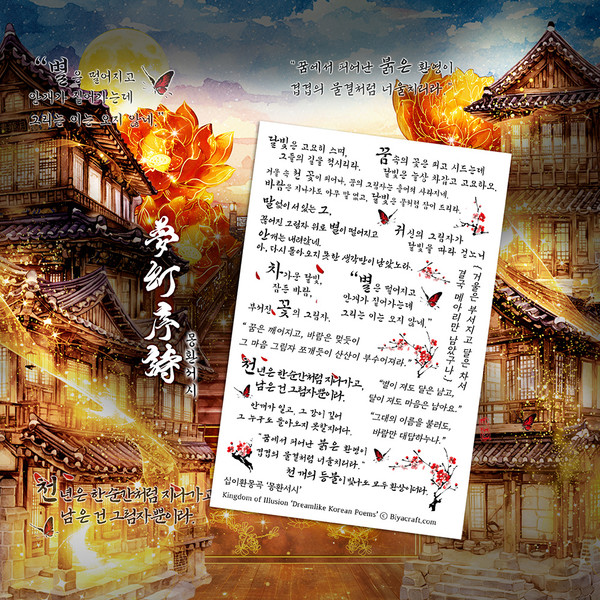 “별은 떨어지고
안개가 짙어가는데
그리는 이는 오지 않네.”
“꿈에서 피어난 붉은 환영이
겹겹의 물결처럼 너울지리라.”
夢幻序詩
몽환서시
천년은 한순간처럼 지나가고
남은 건 그림자뿐이라.
달빛은 고요히 스며,
그들의 길을 적시리라.
꿈속의 꽃은 피고 시드는데
달빛은 늘상 차갑고 고요하오.
거울 속 천 꽃이 피어나, 꿈의 그림자는 숨어서 사라지네.
바람은 지나가도 아무 말 없고, 달빛은 물처럼 잠이 드리라.
말없이 서 있는 그,
끊어진 그림자 위로 별이 떨어지고
안개는 내려앉네.
아, 다시 돌아오지 못한 생각만이 남았노라.
귀신의 그림자가
달빛을 따라 걷노니
“거울은 부서지고 달은 차서
결국 메아리만 남았구나.”
차가운 달빛,
잠든 바람,
부서진 꽃의 그림자.
“별은 떨어지고
안개가 짙어가는데
그리는 이는 오지 않네.”
“꿈은 깨어지고, 바람은 멎듯이
그 마음 그림자 쪼개듯이 산산이 부수어져라.”
천년은 한순간처럼 지나가고,
남은 건 그림자뿐이라.
“별이 져도 달은 남고,
달이 져도 마음은 남아요.”
안개가 일고, 그 길이 깊어
그 누구도 돌아오지 못할지어다.
“그대의 이름을 불러도,
바람만 대답하누나.”
“꿈에서 피어난 붉은 환영이
겹겹의 물결처럼 너울지리라.”
천 개의 등불이 빛나도 모두 환상이려라.
십이환몽곡 '몽환서시'
Kingdom of Illusion 'Dreamlike Korean Poems' ⓒ Biyacraft.com